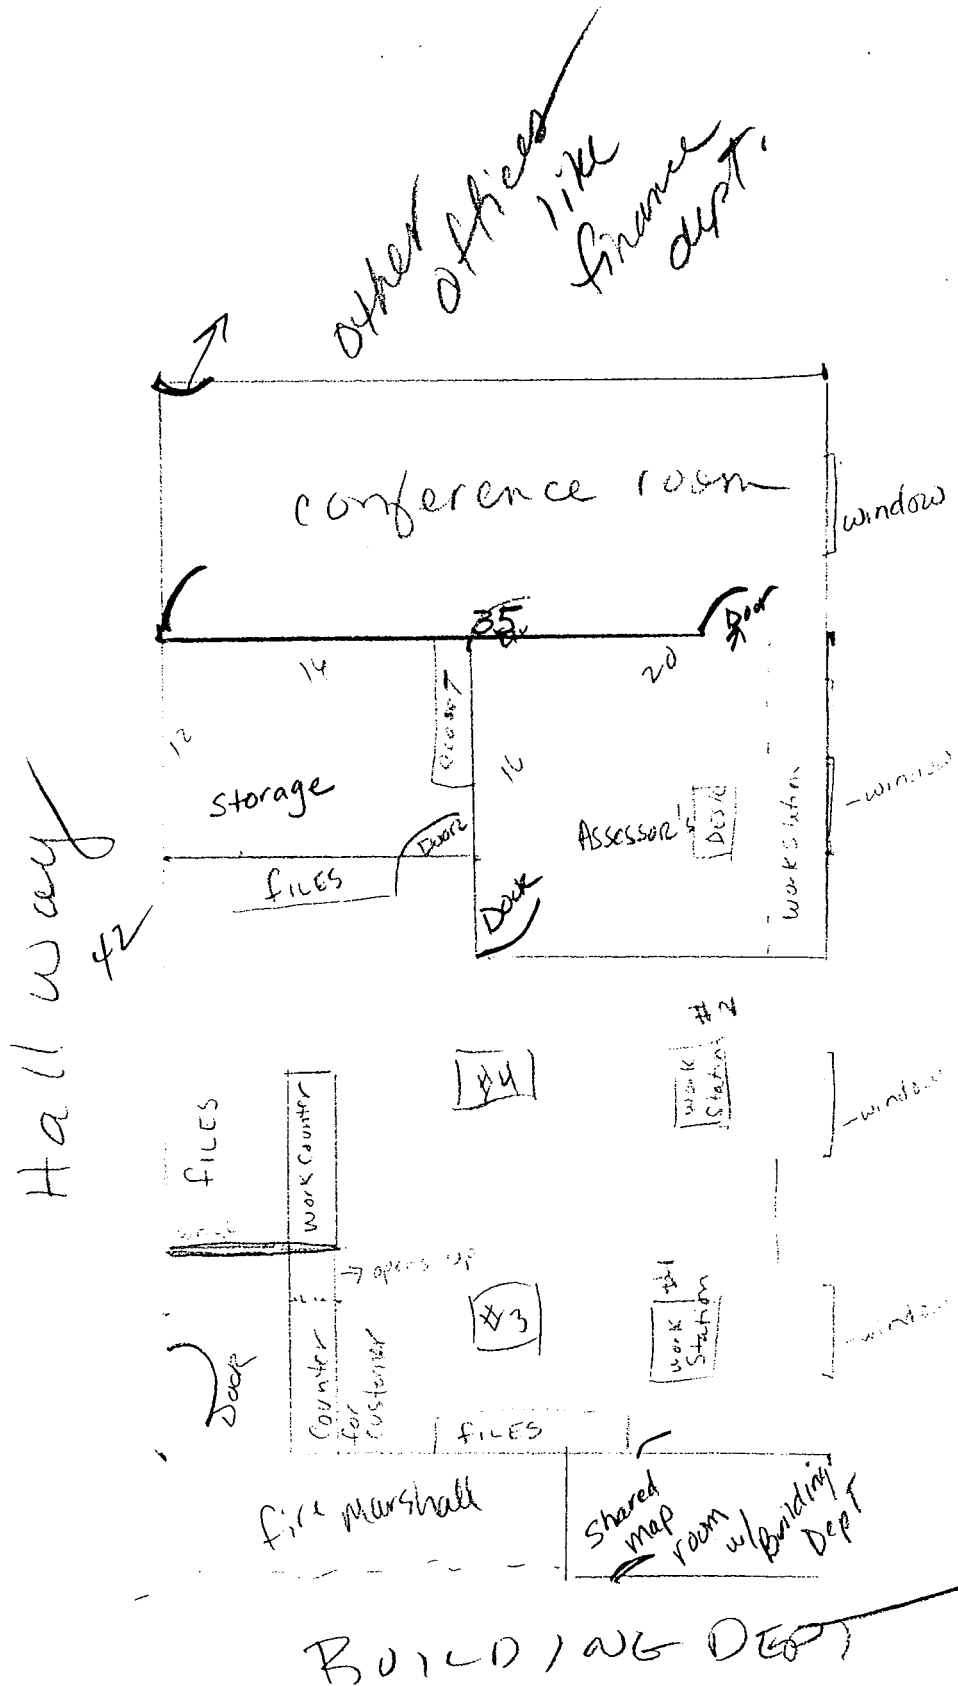 other
offices
like
finance
dept.
conference room
window
35
Door
14
20
12
closet
16
Storage
Door
Assessor's
DESK
workstation
-window
FILES
Door
Hall way
42
#2
#4
work
Station
-window
FILES
work counter
→ opens up
#3
#1
work
Station
-window
Door
Counter
for
customer
FILES
fire Marshall
Shared
map
room
w/Building
Dept
BUILDING DEPT